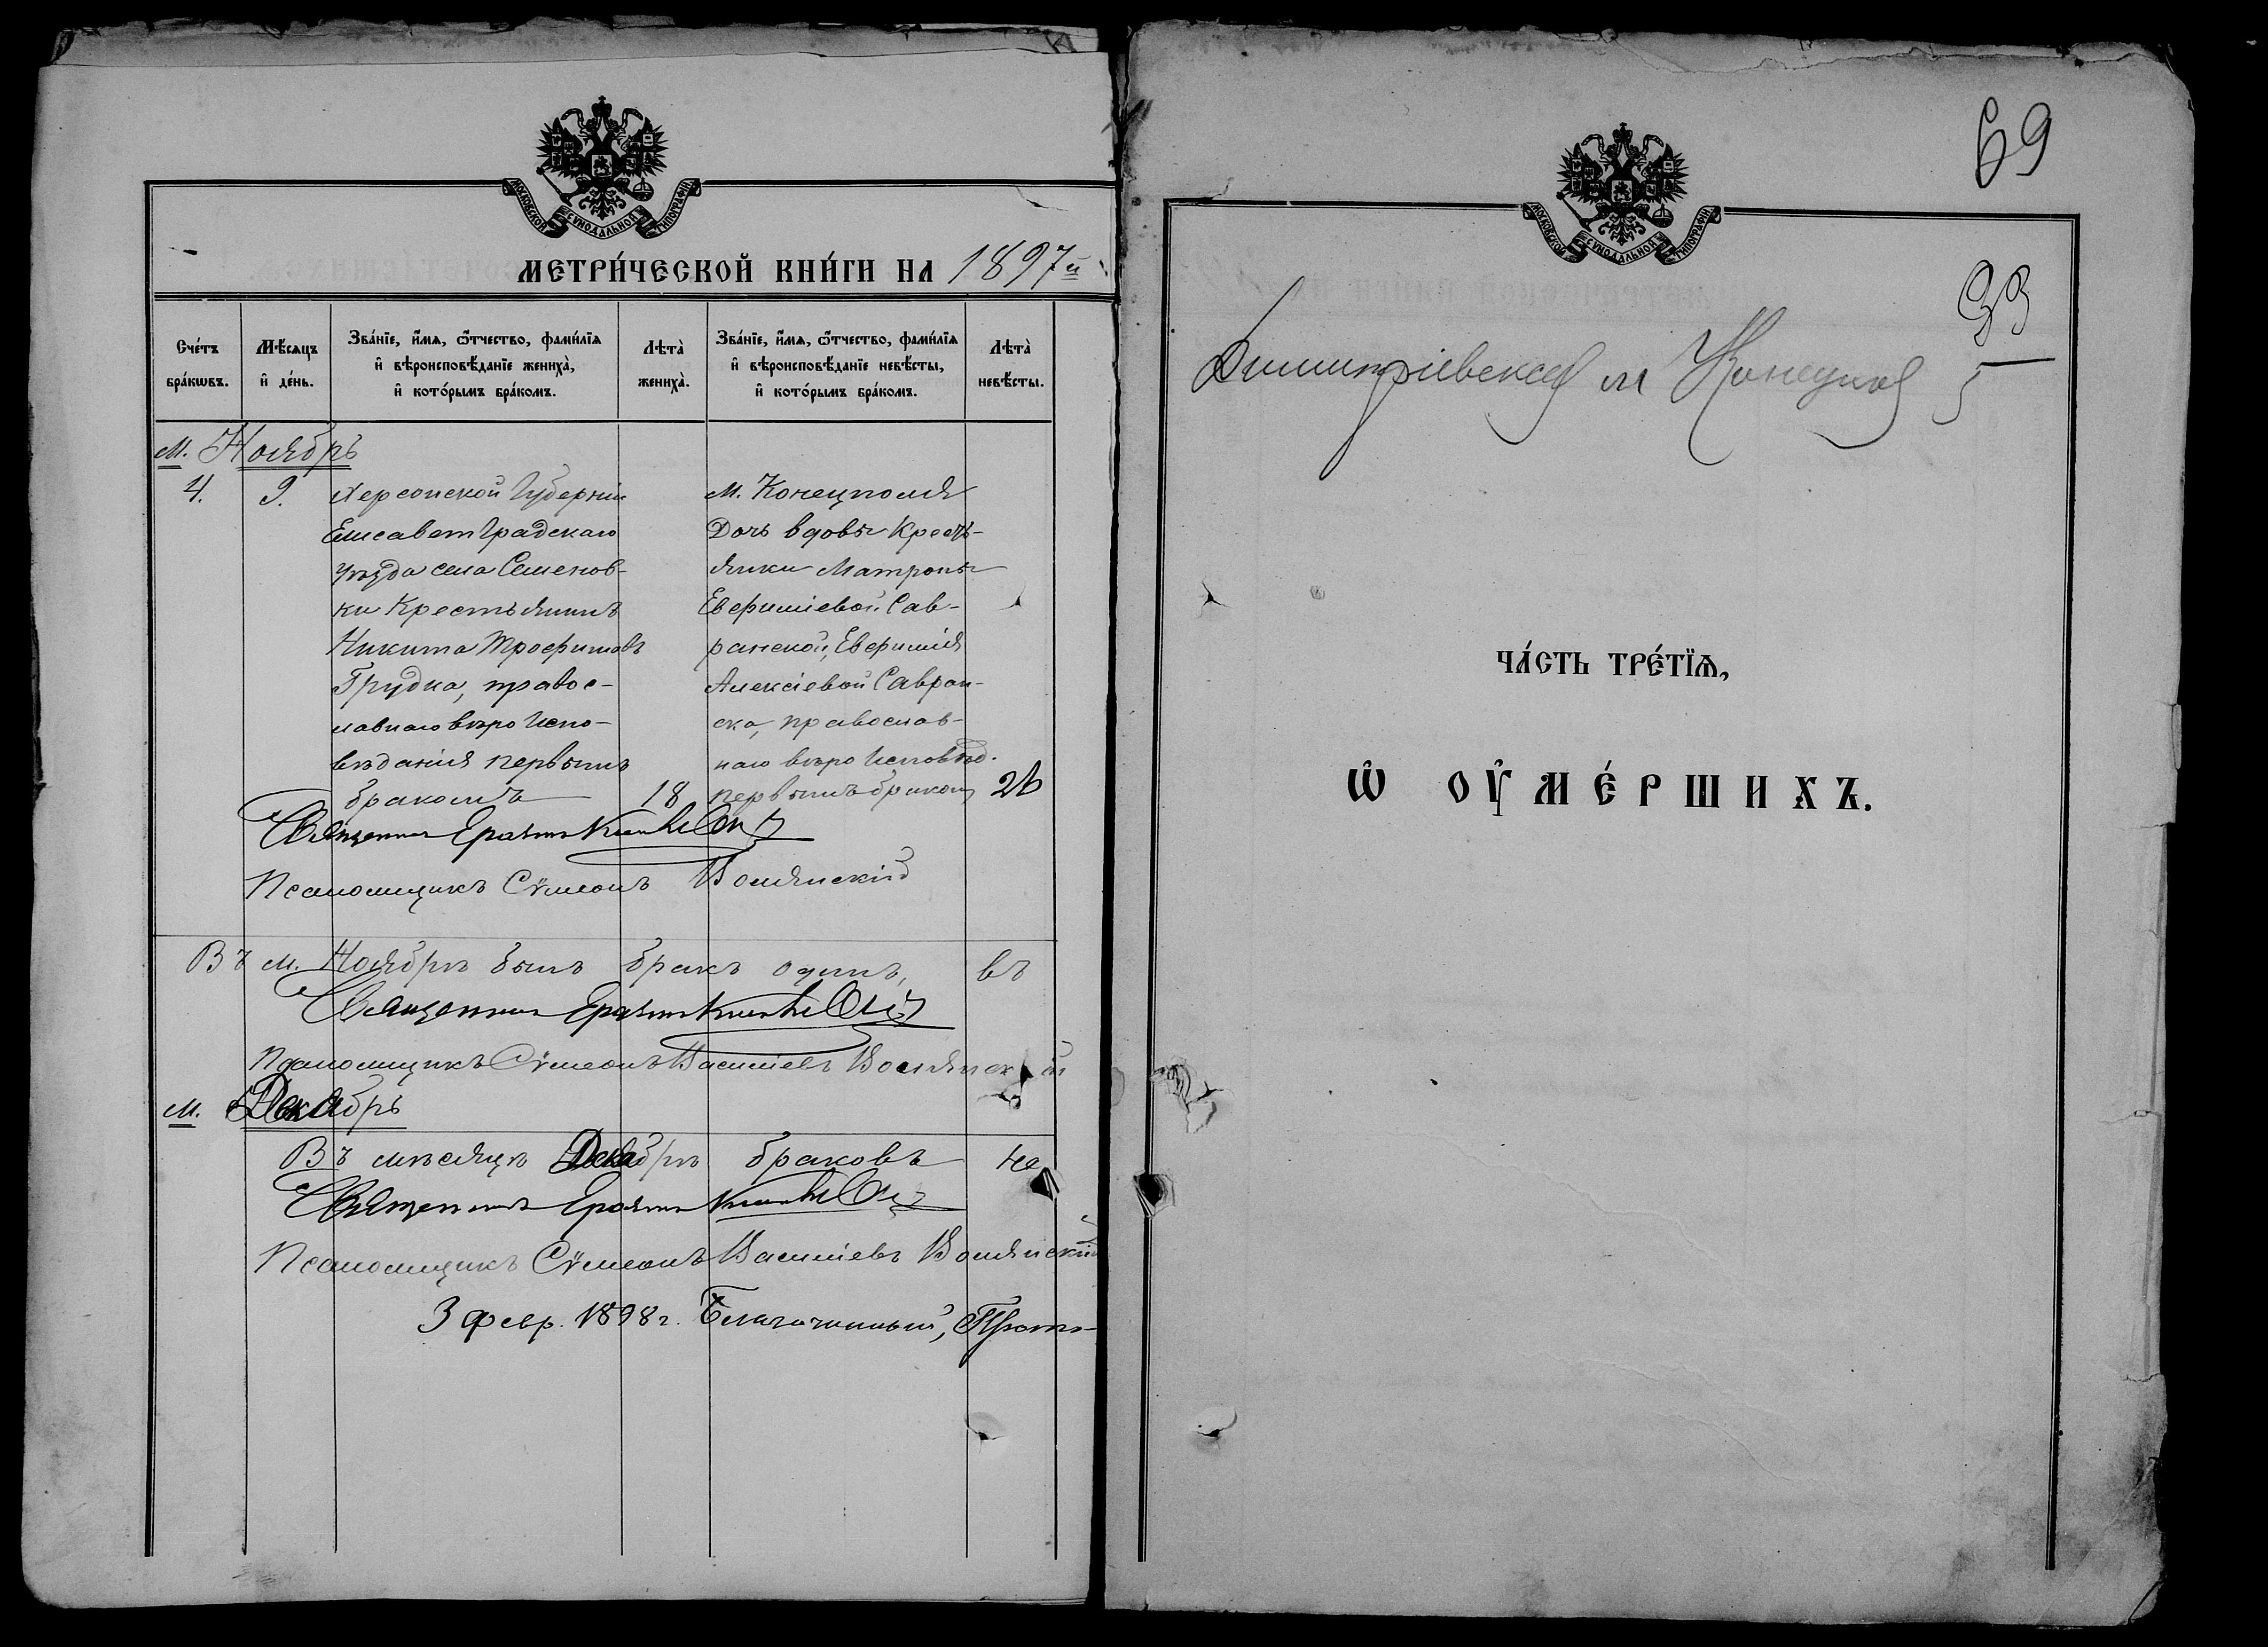 МОСКОВСКОЙ СѴНОДАЛЬНОЙ ТИПОГРАФІИ
МЕТРИ́ЧЕСКОЙ КНИ́ГИ НА 1897й
Сче́тъ бра́кѡвъ.
Мѣ́сяцъ и҆ де́нь.
Зва́нїе, и҆́мѧ, ѻ҆́тчество, фами́лїѧ и҆ вѣроисповѣ́данїе жениха̀, и҆ кото́рымъ бра́комъ.
Лѣта̀ жениха̀.
Зва́нїе, и҆́мѧ, ѻ҆́тчество, фами́лїѧ и҆ вѣроисповѣ́данїе невѣ́сты, и҆ кото́рымъ бра́комъ.
Лѣта̀ невѣ́сты.
м. Ноябрь
4.
9.
Херсонской Губерніи
Елисаветградскаго
уѣзда села Семенов-
ки Крестьянинъ
Никита Трофимовъ
Грудка, правос-
лавнаго вѣро Испо-
вѣданія первымъ
бракомъ
18
м. Конецполя
Дочь вдовы Кресть-
янки Матроны
Евфиміевой Сав-
ранской, Евфимія
Алексіевой Савран-
ска, православ-
наго вѣро Исповѣд.
первымъ бракомъ
26
Священникъ
Псаломщикъ Сѵмеонъ Волянскій
Въ м. Ноябрѣ былъ бракъ одинъ, въ
Священникъ
Псаломщикъ Сѵмеонъ Василіевъ Волянскій
м. Декабрь
Въ мѣсяцѣ Декабрѣ браковъ не
Священникъ
Псаломщикъ Сѵмеонъ Василіевъ Волянскій
3 февр. 1898 г. Благочинный, Прото-
69
МОСКОВСКОЙ СѴНОДАЛЬНОЙ ТИПОГРАФІИ
33
5
Димитріевская м
ЧА́СТЬ ТРЕ́ТЇѦ,
Ѡ҆ ОУ҆МЕ́РШИХЪ.